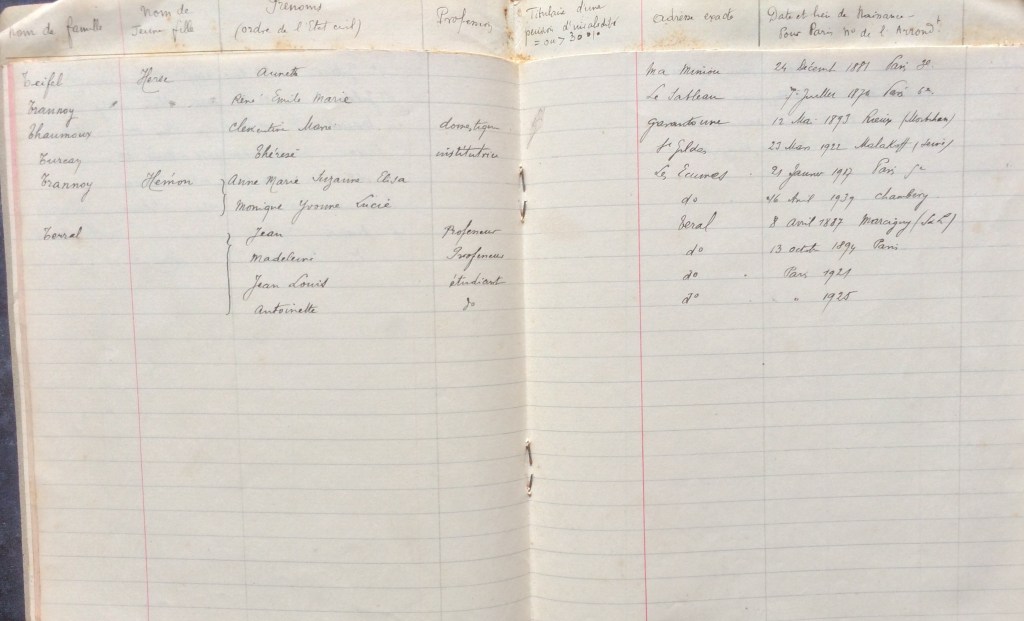 nom de famille nom de Jeune fille Prénoms (ordre de l'Etat civil) Profession Titulaire d'une pension d'invalidité = ou > 30% adresse exacte Date et lieu de Naissance - Pour Paris N° de l'Arrondt
Teifel Herse Ma Miniou 24 Décemb 1881 Paris
Trannoy " " " René Emile Marie Le Sableau 7 Juillet Paris
Thaumoux Clementine Marie domestique 12 Mai 1893 Rieux (Morbihan)
Thérèse institutrice St Gildas 23 Mars 1922 Malakoff (Seine)
Trannoy Hemon Anne Marie Suzanne Elisa Les Ecumes 21 Janvier Paris
Monique Yvonne Lucie do Avril 1939 Chambery
Terral Jean Professeur Teral 8 Avril 1887 Marcigny (S.&L.)
Madeleine Professeur do 13 octob 1894 Paris
Jean Louis étudiant do Paris 1921
Antoinette do do " 1925